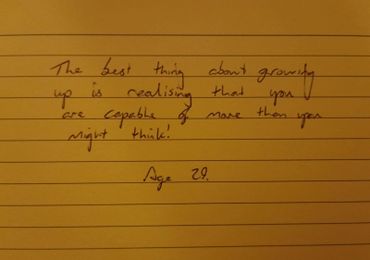 The best thing about growing
up is realising that you
are capable of more than you
might think!
Age 29.